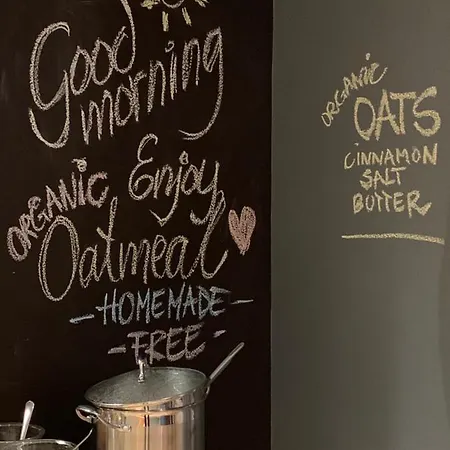 Good
morning
Enjoy
ORGANIC
Oatmeal
-HOMEMADE-
-FREE-
ORGANIC
OATS
CINNAMON
SALT
BUTTER